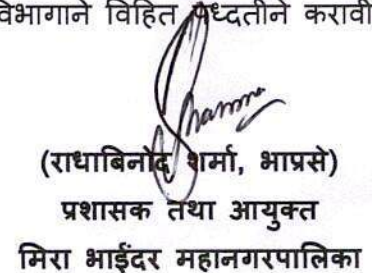 विभागाने विहित पध्दतीने करावी
(राधाबिनोद शर्मा, भाप्रसे)
प्रशासक तथा आयुक्त
मिरा भाईंदर महानगरपालिका